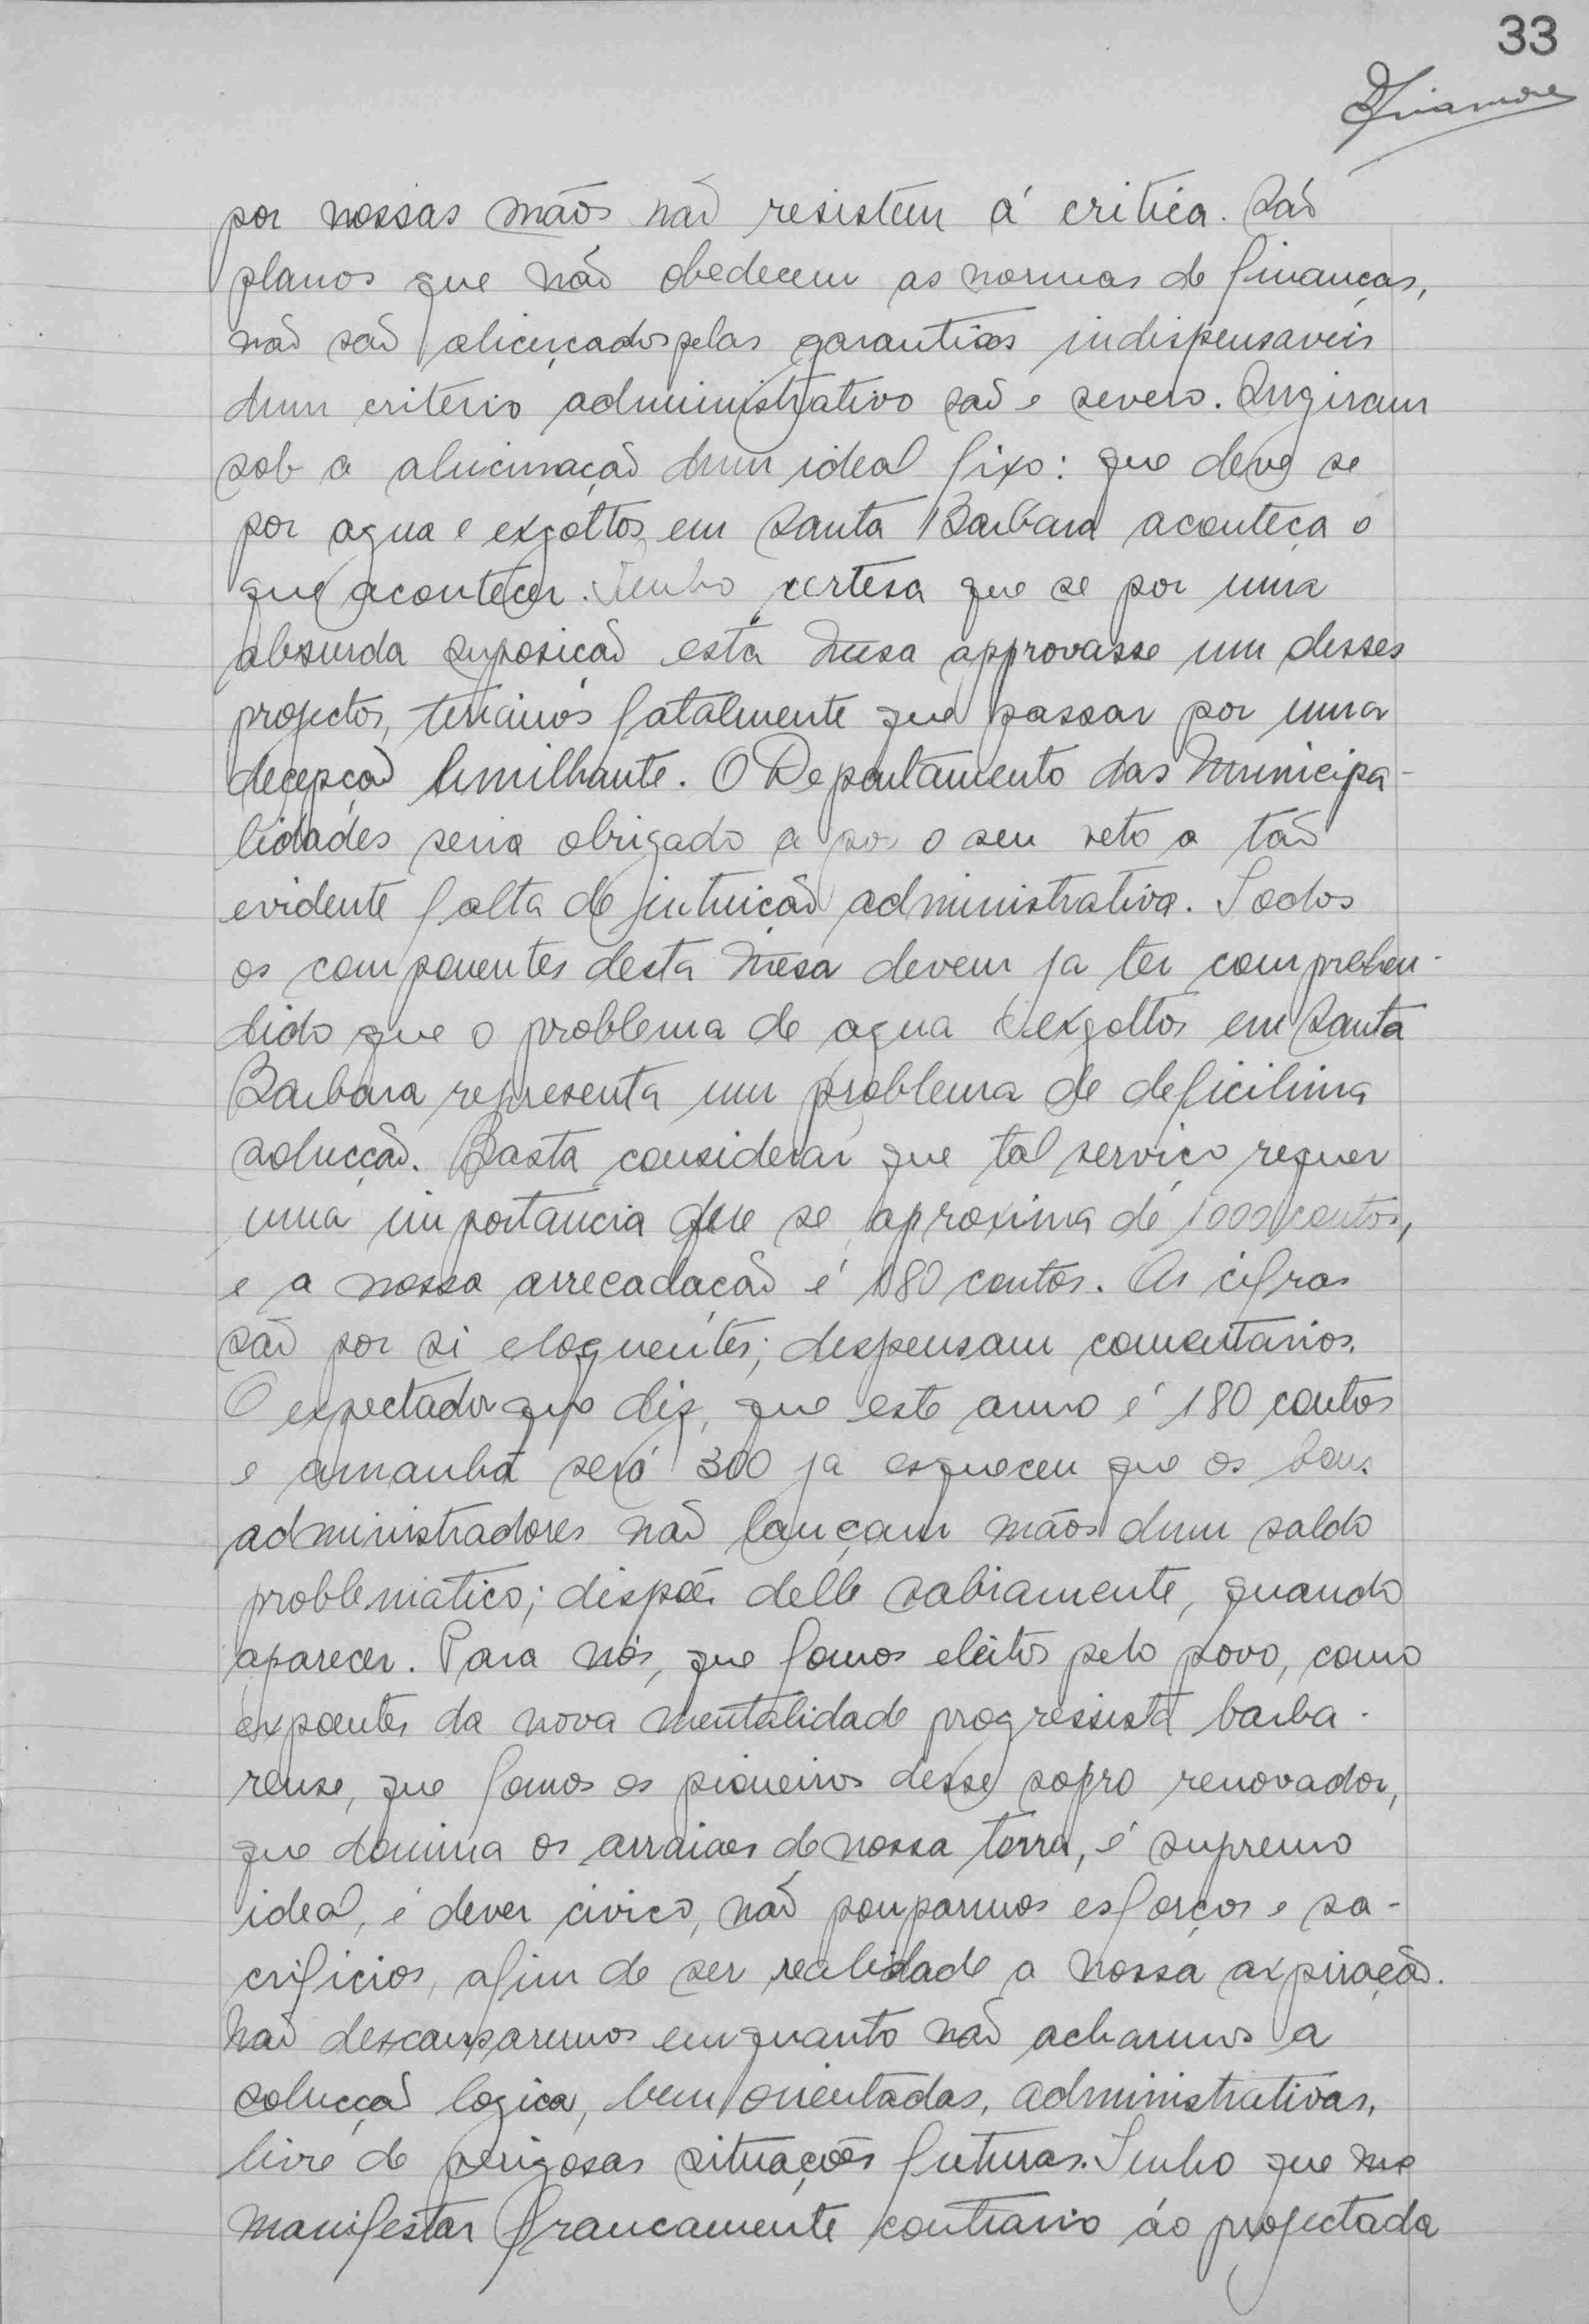 33
por nossas mãos não resistem á critica. São
planos que não obedecem as normas de finanças,
não são alicerçados pelas garantias indispensaveis
dum criterio administrativo são e severo. Surgiram
sob a alucinação dum ideal fixo: que deve se
por agua e exgottos em Santa Barbara aconteça o
que acontecer. Tenho certesa que se por uma
absurda suposição esta Mesa approvasse um desses
projectos, teriamos fatalmente que passar por uma
decepção humilhante. O Departamento das Municipa-
lidades seria obrigado a por o seu veto a tão
evidente falta de intuição administrativa. Todos
os componentes desta Mesa devem ja ter comprehen-
dido que o problema de agua e exgottos em Santa
Barbara representa um problema de deficilima
solucção. Basta considerar que tal serviço requer
uma importancia que se aproxima de 1000 contos,
e a nossa arrecadação é 180 contos. As cifras
são por si eloquentes; despensam comentarios.
O expectador que diz, que este anno é 180 contos
e amanhã será 300 ja esqueceu que os bons
administradores não lançam mãos dum saldo
problematico; dispõe delle sabiamente, quando
aparecer. Para nós, que fomos eleitos pelo povo, como
expoentes da nova mentalidade progressista barba-
rense, que fomos os pioneiros desse sopro renovador,
que domina os arraiaes de nossa terra, é supremo
ideal, é dever civico, não pouparmos esforços e sa-
crificios, afim de ser realidade a nossa aspiração.
Não descansaremos emquanto não acharmos a
solucção logica, bem orientadas, administrativas,
livre de perigosas situações futuras. Tenho que me
manifestar francamente contrario áo projectada